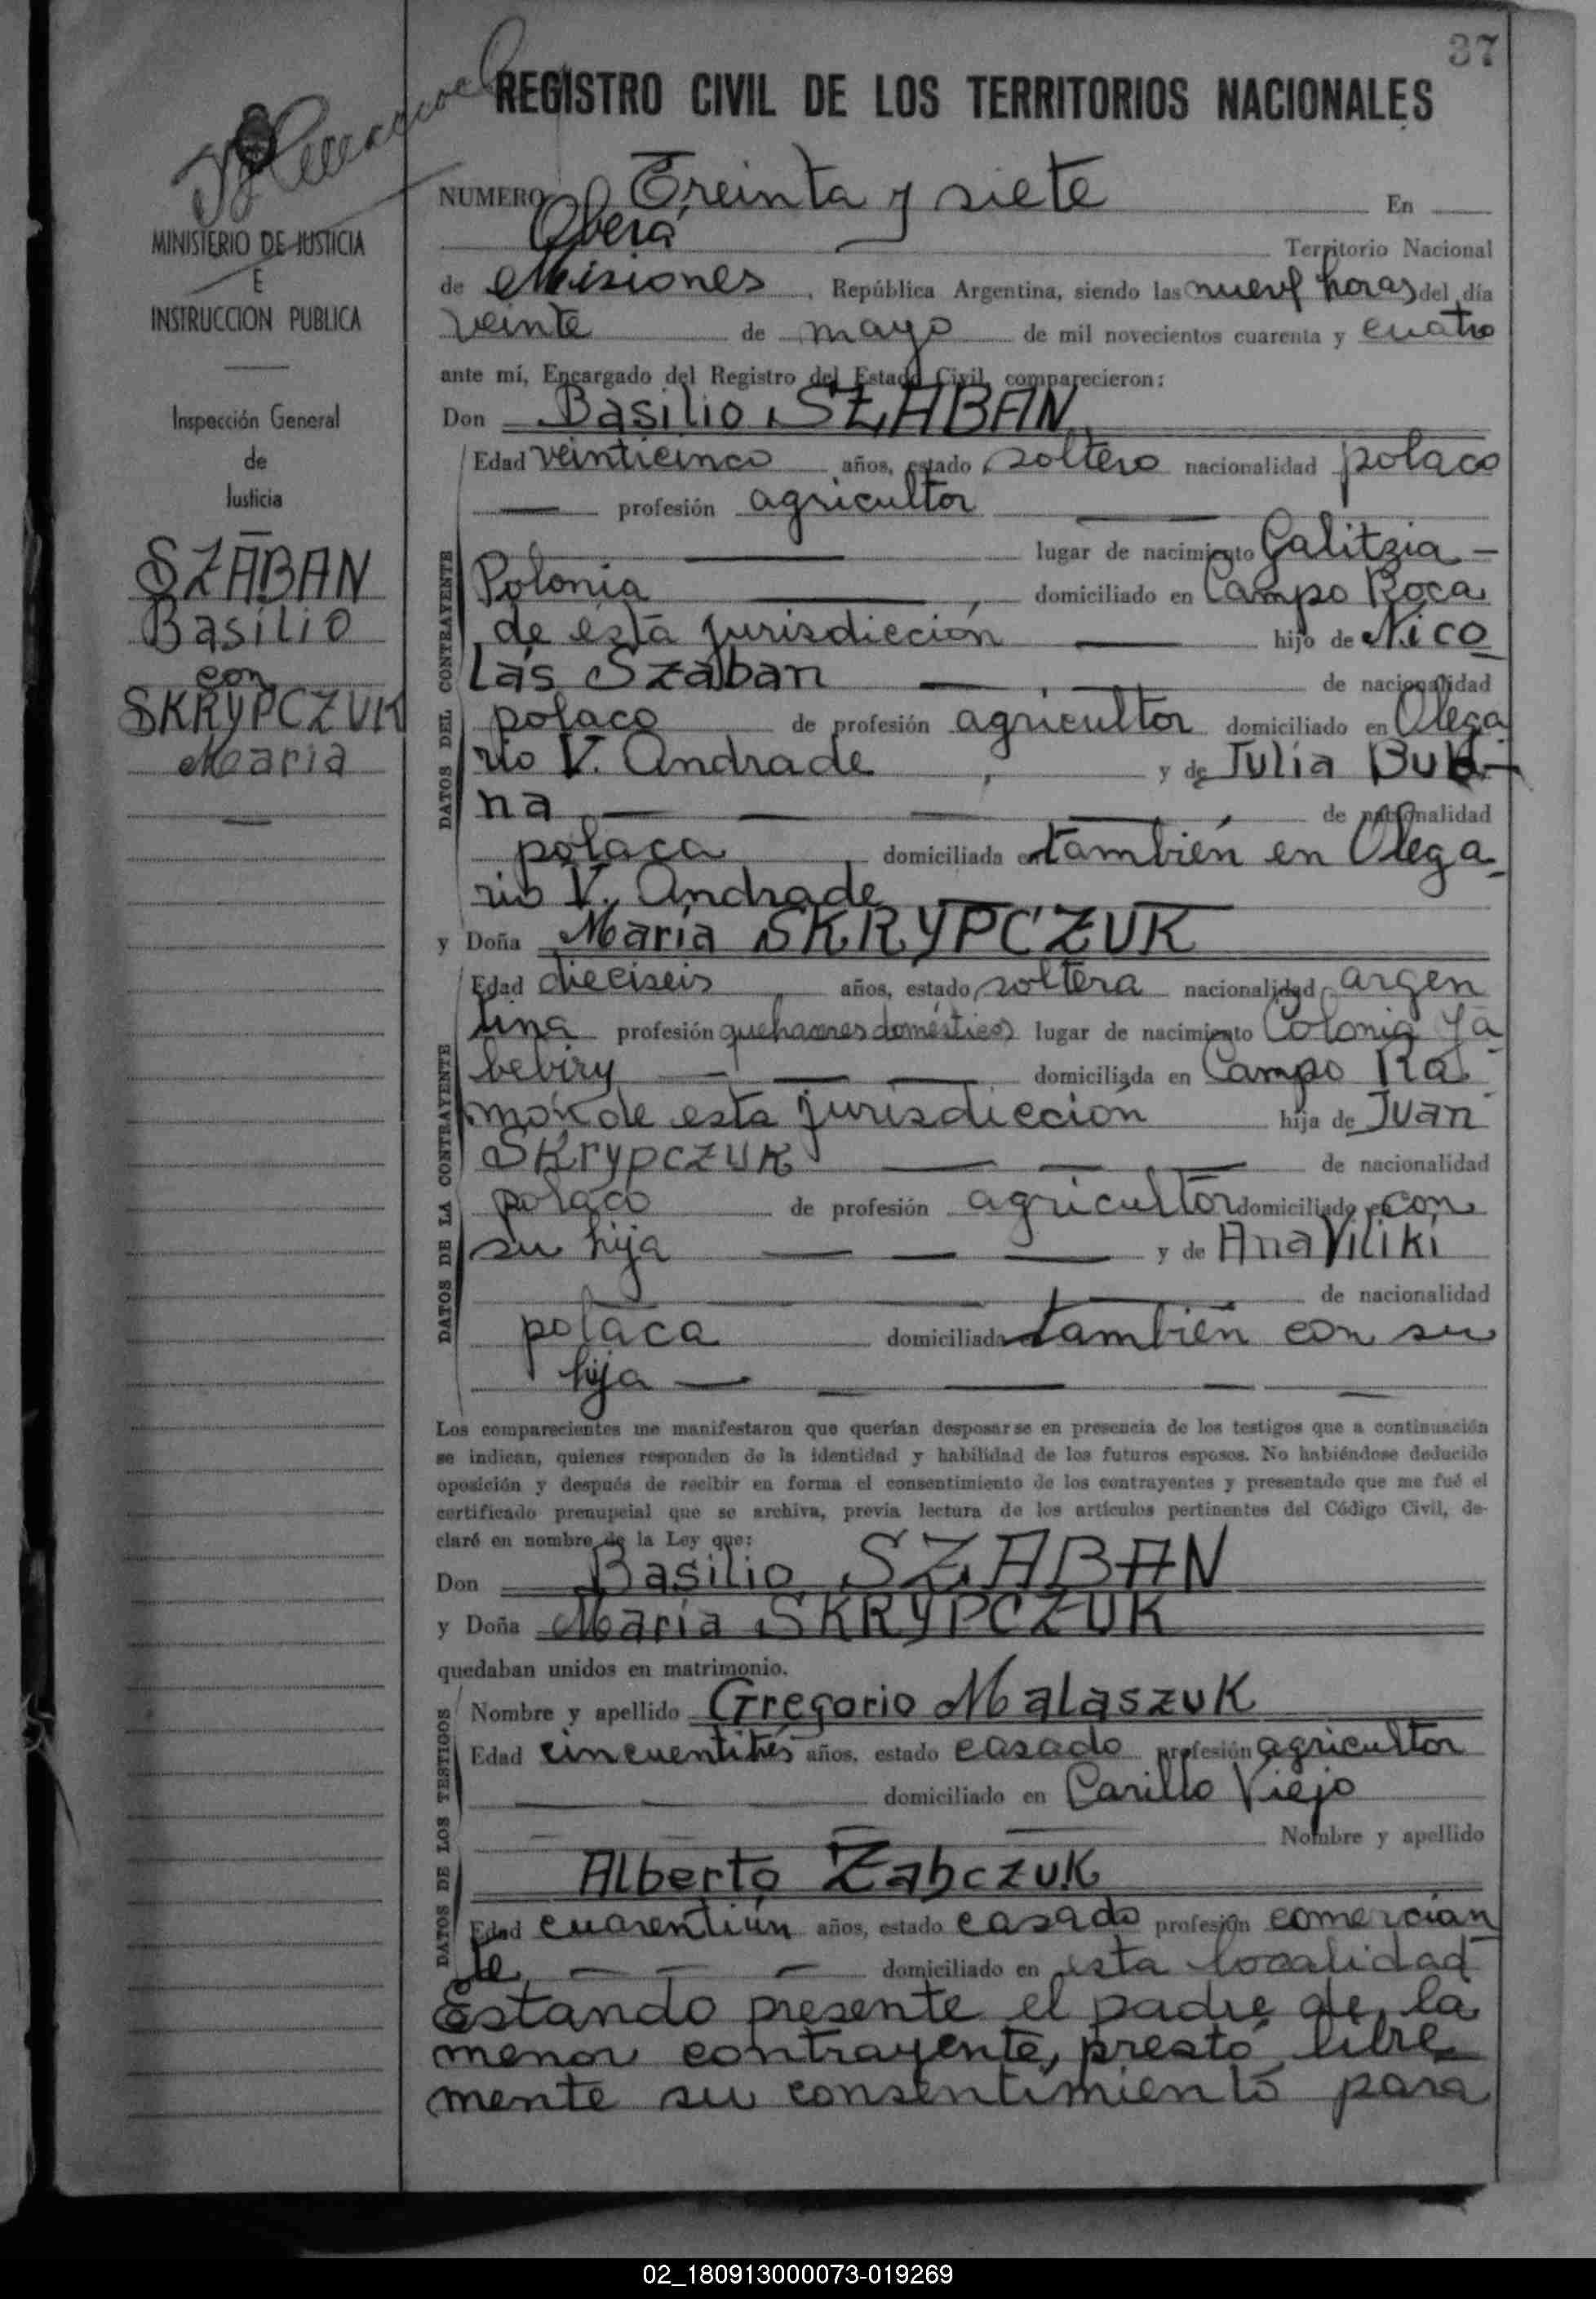 37
REGISTRO CIVIL DE LOS TERRITORIOS NACIONALES
MINISTERIO DE JUSTICIA
E
INSTRUCCION PUBLICA
Inspección General
de
Justicia
SZABAN
Basilio
con
SKRYPCZUK
Maria
NUMERO Treinta y siete En
Oberá Territorio Nacional
de Misiones, República Argentina, siendo las nueve horas del día
veinte de mayo de mil novecientos cuarenta y cuatro
ante mí, Encargado del Registro del Estado Civil, comparecieron:
Don Basilio SZABAN
DATOS DEL CONTRAYENTE
Edad veinticinco años, estado soltero nacionalidad polaco
profesión agricultor
lugar de nacimiento Galitzia -
Polonia, domiciliado en Campo Roca
de esta jurisdicción hijo de Nico
lás Szaban de nacionalidad
polaco de profesión agricultor domiciliado en Olega
rio V. Andrade, y de Julia Buk-
na de nacionalidad
polaca, domiciliada en también en Olega
rio V. Andrade
y Doña María SKRYPCZUK
DATOS DE LA CONTRAYENTE
Edad dieciseis años, estado soltera nacionalidad argen
tina profesión quehaceres domésticos lugar de nacimiento Colonia Ya
bebiry domiciliada en Campo Ra
món de esta jurisdicción hija de Juan
Skrypczuk de nacionalidad
polaco de profesión agricultor domiciliado en con
su hija y de Ana Viliki
de nacionalidad
polaca domiciliada en también con su
hija
Los comparecientes me manifestaron que querían desposarse en presencia de los testigos que a continuación
se indican, quienes responden de la identidad y habilidad de los futuros esposos. No habiéndose deducido
oposición y después de recibir en forma el consentimiento de los contrayentes y presentado que me fué el
certificado prenupcial que se archiva, previa lectura de los artículos pertinentes del Código Civil, de-
claré en nombre de la Ley que:
Don Basilio SZABAN
y Doña María SKRYPCZUK
quedaban unidos en matrimonio.
DATOS DE LOS TESTIGOS
Nombre y apellido Gregorio Malaszuk
Edad cincuentitrés años, estado casado profesión agricultor
domiciliado en Carillo Viejo
Nombre y apellido
Alberto Zabczuk
Edad cuarentiún años, estado casado profesión comercian
te domiciliado en esta localidad
Estando presente el padre de la
menor contrayente, prestó libre
mente su consentimiento para
02_180913000073-019269